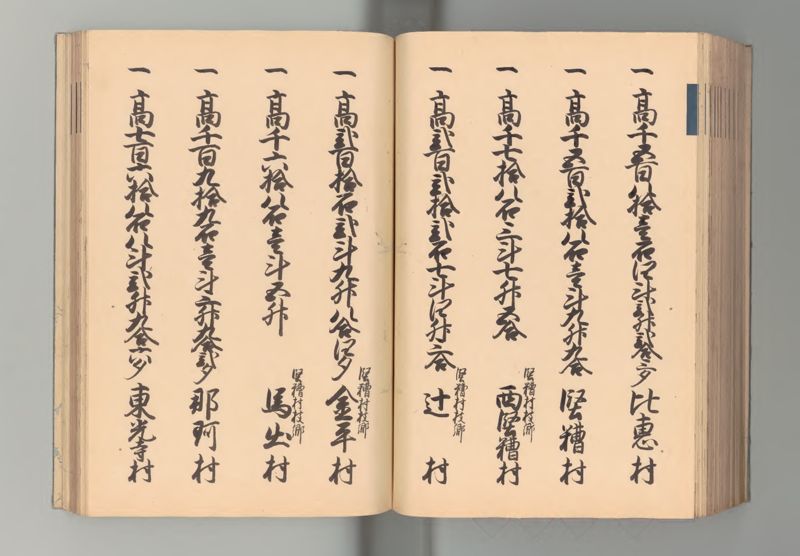 一 高千五百八拾壱石四斗弐升壱合三夕 比恵村
一 高千五百弐拾八石壱斗九升九合 堅糟村
一 高千七拾八石三斗七升五合 堅糟村枝郷 西堅糟村
一 高弐百弐拾弐石七斗四升六合 堅糟村枝郷 辻村
一 高弐百拾石弐斗九升八合四夕 堅糟村枝郷 金平村
一 高千六拾八石壱斗五升 堅糟村枝郷 馬出村
一 高千百九拾九石壱斗六升九合弐夕 那珂村
一 高七百六拾八石八斗弐升九合六夕 東光寺村